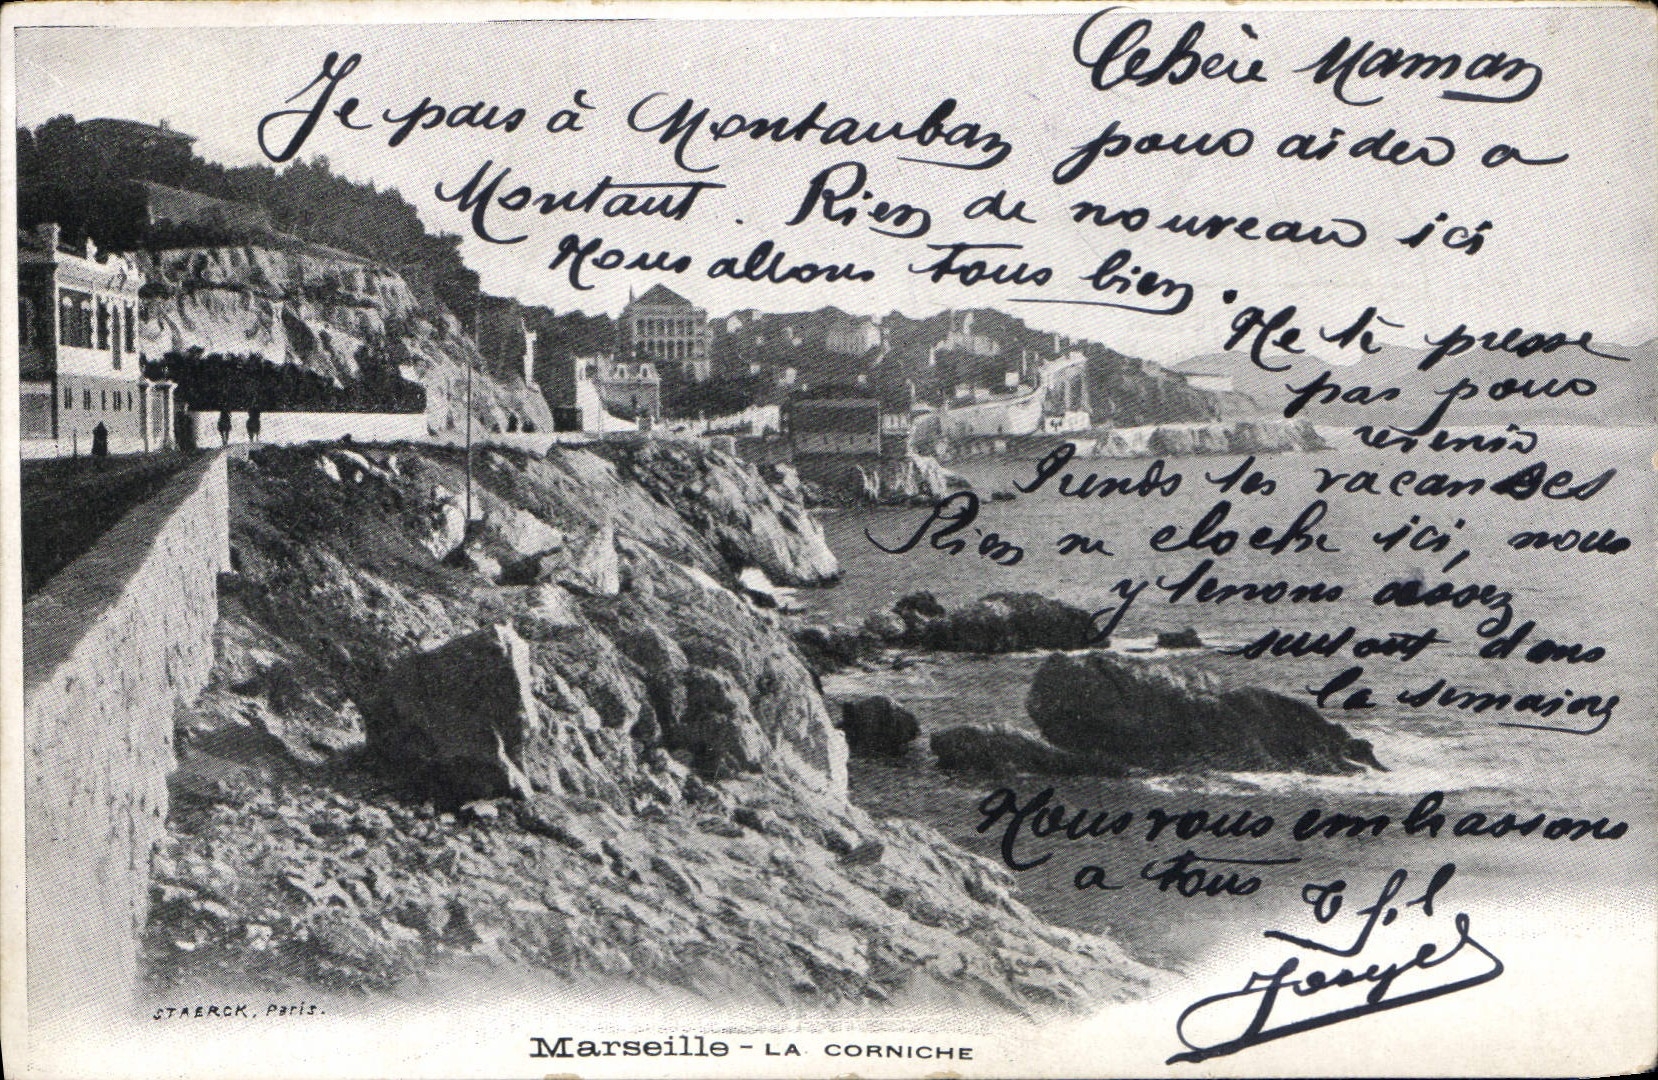 Chère Maman
Je pars à Montauban pour aider a
Montaut. Rien de nouveau ici
Nous allons tous bien.
Ne te presse
pas pour
revenir
Prends tes vacances
Rien ne cloche ici, nous
y tenons assez
surtout dans
la semaine
Nous vous embrassons
a tous
STAERCK, Paris.
Marseille - LA CORNICHE